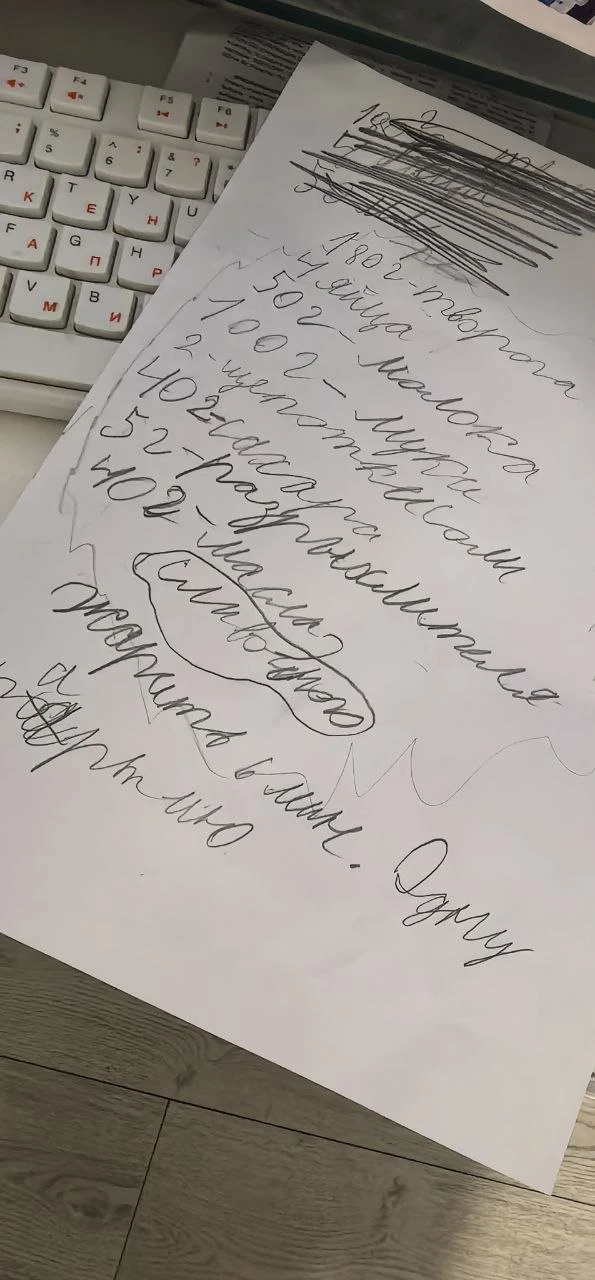 F3
F4
F5
F6
%
5
^ :
6
& ?
7
R К
T Е
Y Н
U
F А
G П
H Р
V М
B И
180г-творога
4 яйца
50г - молока
100г - муки
2-щепотки соли
40г-сахара
5г-разрыхлителя
40г - масла
сливочного
жарить 6 мин. Одну
партию